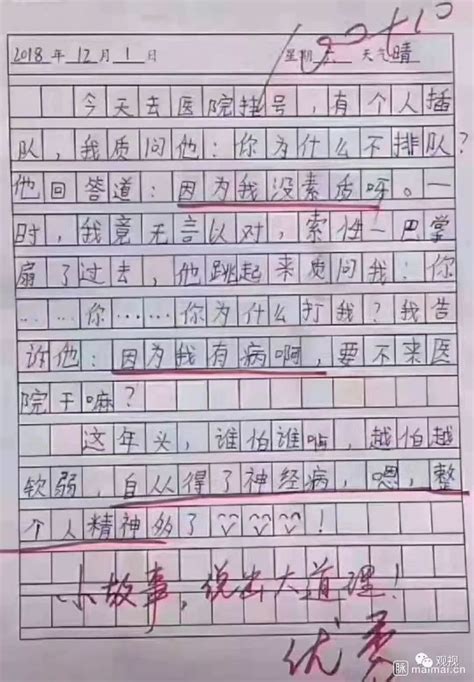 100+10
2018年12月1日 星期六 天气晴
今天去医院挂号，有个人插
队，我质问他：你为什么不排队？
他回答道：因为我没素质呀。一
时，我竟无言以对，索性一巴掌
扇了过去，他跳起来质问我：你
……你……你为什么打我？我告
诉他：因为我有病啊，要不来医
院干嘛？
这年头，谁怕谁呐，越怕越
软弱，自从得了神经病，嗯，整
个人精神多了！
小故事，说出大道理！
优秀
观视
脉 maimai.cn